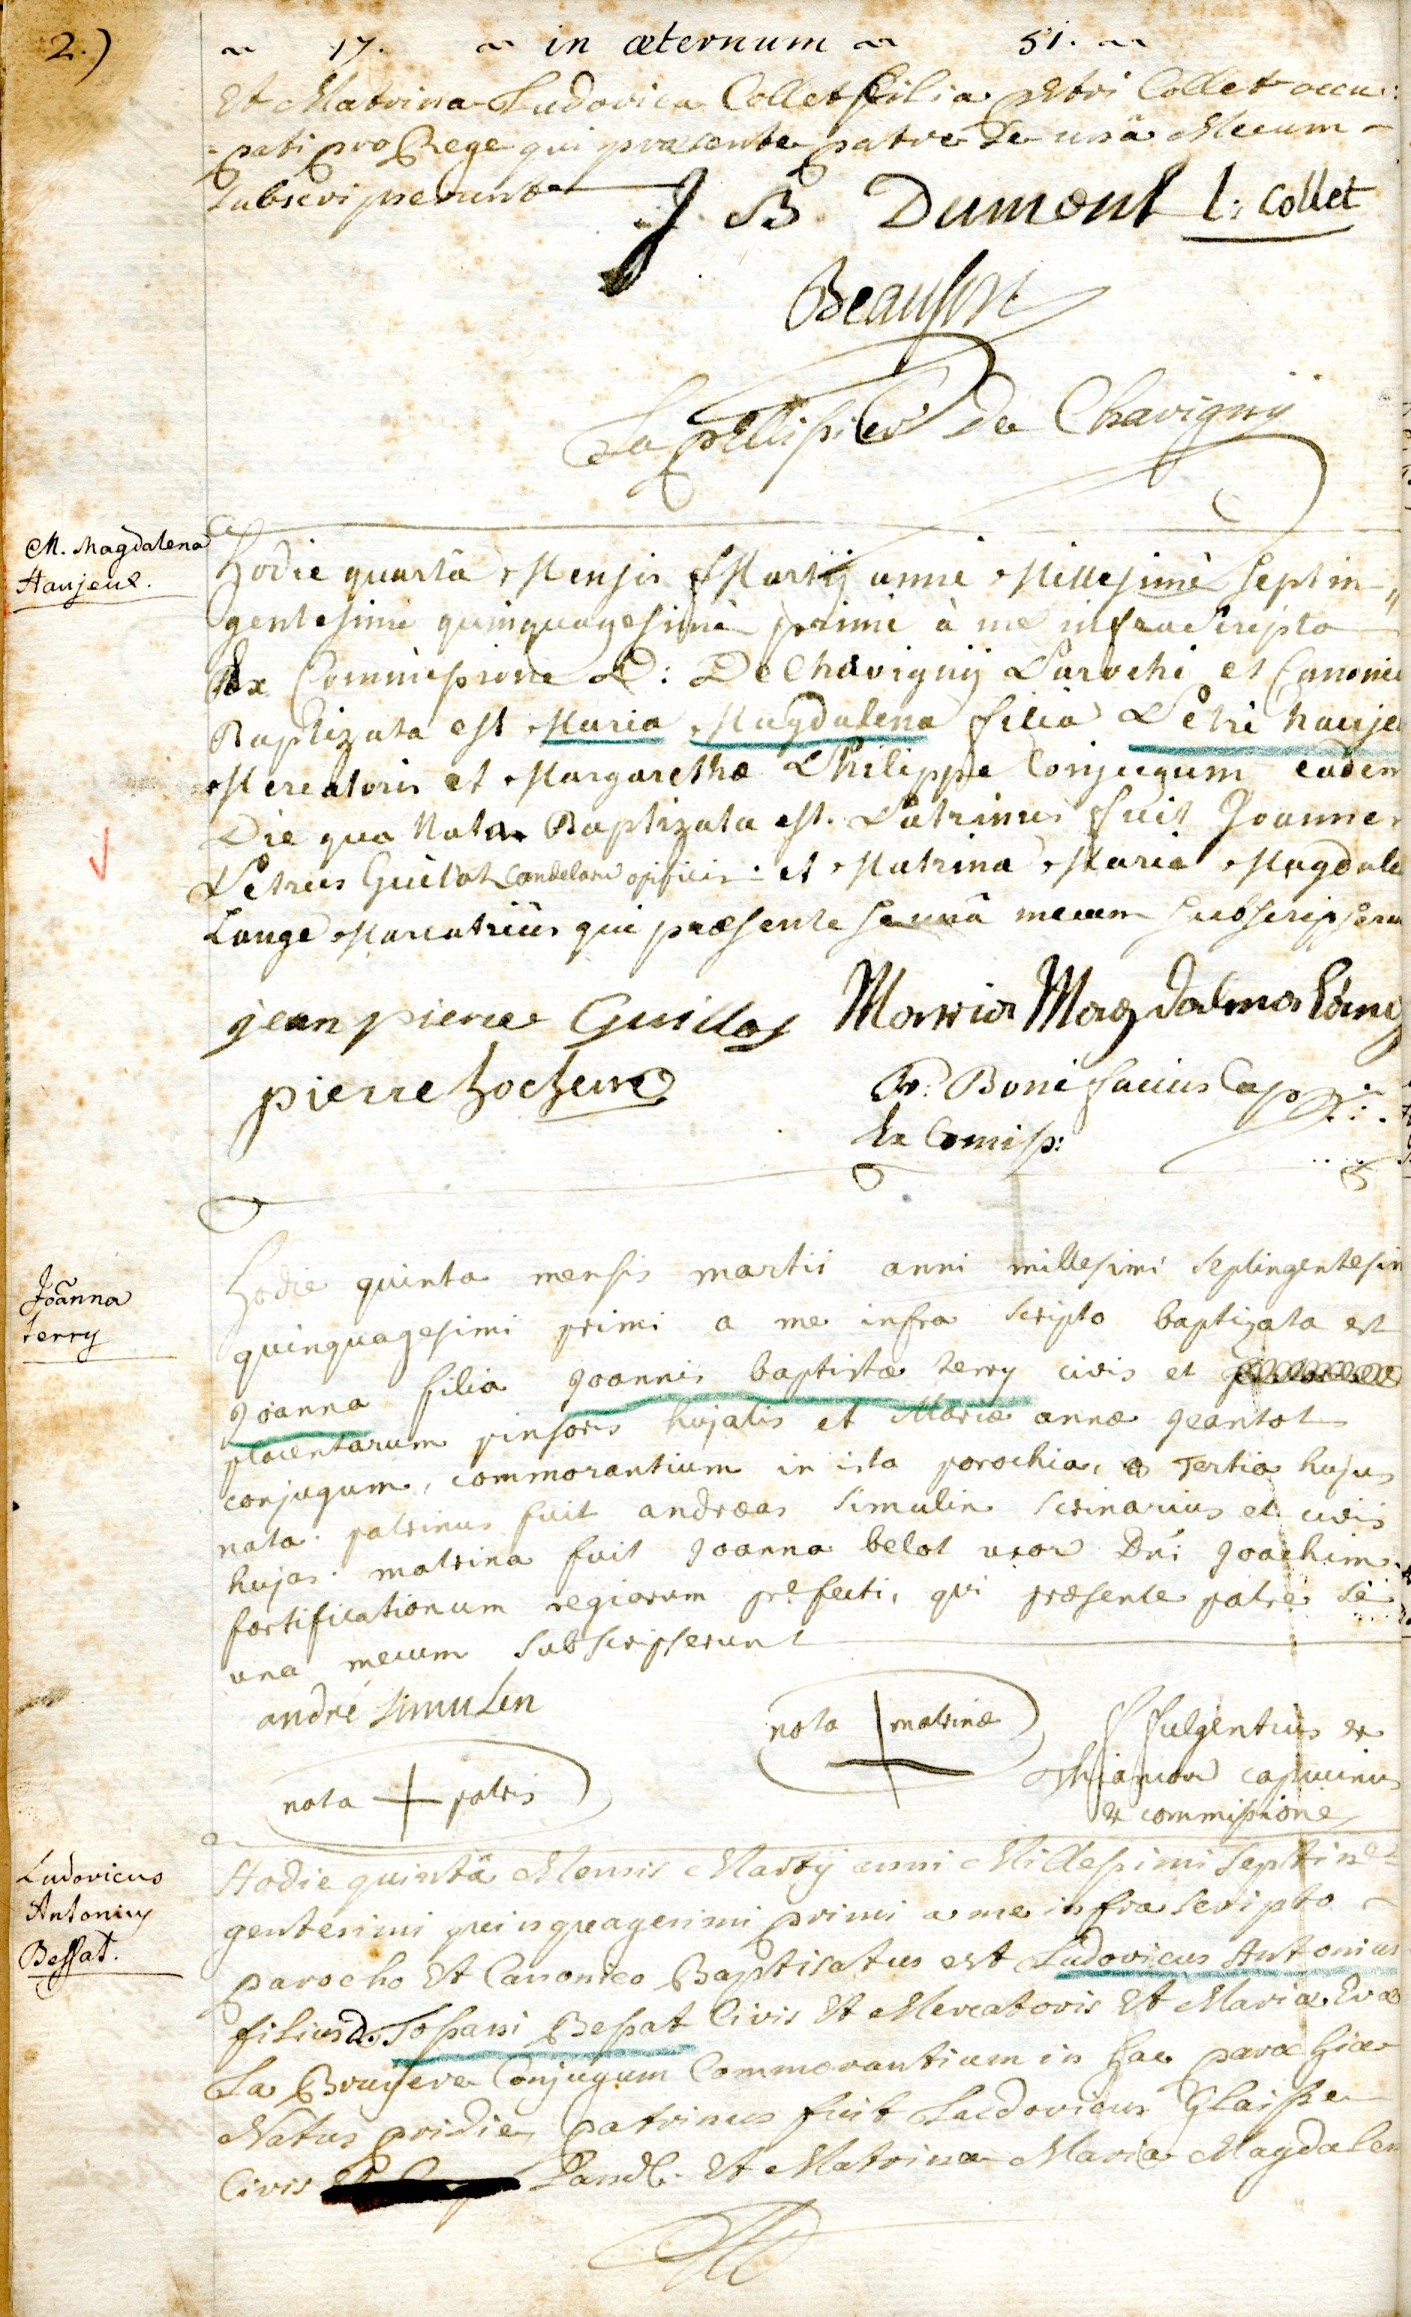 2.)
17. in æternum 51.
Et Matrina Ludovica Collet filia petri Collet occu:
pati pro Rege qui præsente patre se unâ Mecum
subscripserunt
J B Dumont l: Collet
Beaufort
Le pellissier De Chavignÿ
M. Magdalena
Haujeux.
hodie quartâ Mensis Martij anni Millesimi septin„
gentesimi quinquagesimi primi à me infrascripto
Ex Commissione D: De Chavignÿ Parochi et Canonici
Baptizata est Maria Magdalena filia Petri hauje
Mercatoris et Margarethæ Philippe Conjugum eadem
Die qua Nata Baptizata est. Patrinus fuit Joannes
Petrus Guilot Candelarū opificis. et Matrina Maria Magdale
Lange qui præsente se unâ mecum subscripserun
jean pierre Guillot Marria Magdalena Lang
pierre hocheux
Fr: Bonifacius Cap
Ex Comiss:
Joãnna
terry
hodie quinta mensis martii anni millesimi septingentesim
quinquagesimi primi a me infra scripto baptizata est
joanna filia joannis baptistæ terry civis et
placentarum pinsoris hujatis et Mariæ annæ jeantot
conjugum, commorantium in ista parochia, a tertia hujus
nata. patrinus fuit andreas simulin scrinarius et civis
hujas. matrina fuit joanna belot uxor Dñi joachim
fortificationum regiarum præfecti, qui præsente patre se
una mecum subscripserunt
andré simulin
nota matrinæ
nota patris
f fulgentius ex
capucinus
ex commissione
Ludovicus
Antonius
Bessat.
Hodie quintâ Mensis Martij anni Millesimi septin
gentesimi quinquagesimi primi a me infra scripto
parocho Et Canonico Baptisatus est Ludovicus Antonius
filius D. Stephani Bessat Civis Et Mercatoris Et Mariæ Evæ
La Bruyere Conjugum Commorantium in hac parochia
Natus pridie, patrinus fuit Ludovicus Glaisse
Civis Land. Et Matrina Maria Magdalen